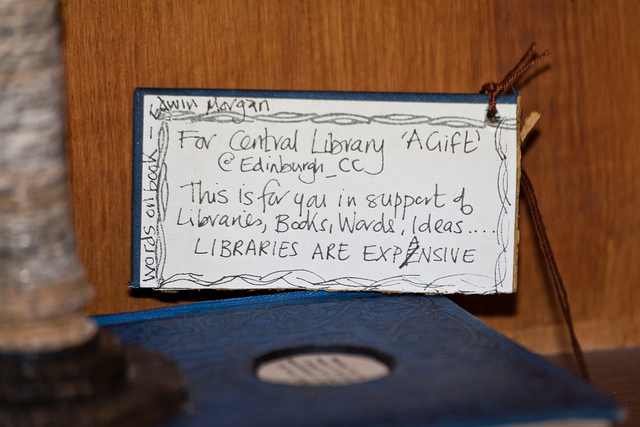 words on book — Edwin Morgan
For Central Library 'A Gift'
@Edinburgh_CC
This is for you in support of
Libraries, Books, Words, Ideas....
LIBRARIES ARE EXPANSIVE